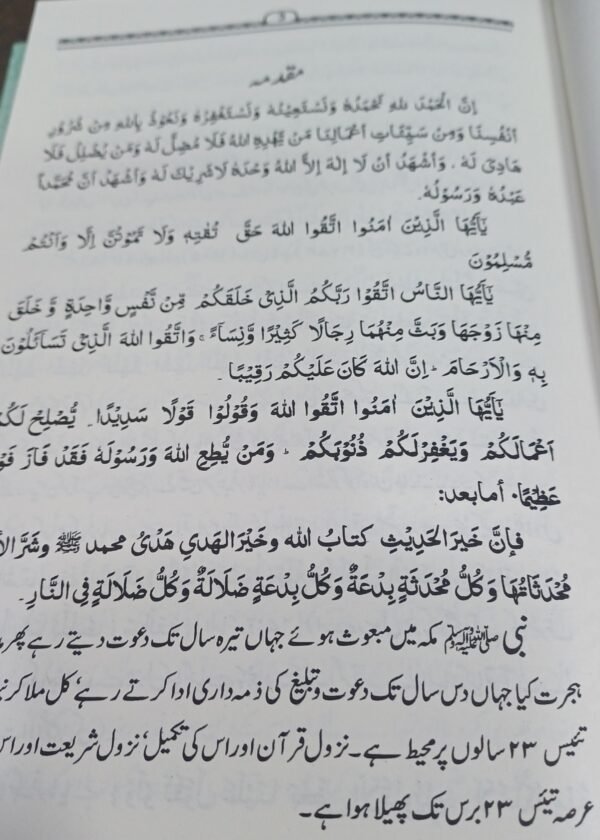 3
مقدمہ
إِنَّ الْحَمْدَ لِلّٰهِ نَحْمَدُهٗ وَنَسْتَعِيْنُهٗ وَنَسْتَغْفِرُهٗ وَنَعُوْذُ بِاللّٰهِ مِنْ شُرُوْرِ
اَنْفُسِنَا وَمِنْ سَيِّئَاتِ اَعْمَالِنَا مَنْ يَّهْدِهِ اللّٰهُ فَلَا مُضِلَّ لَهٗ وَمَنْ يُّضْلِلْ فَلَا
هَادِىَ لَهٗ ، وَاَشْهَدُ اَنْ لَّا اِلٰهَ اِلَّا اللّٰهُ وَحْدَهٗ لَا شَرِيْكَ لَهٗ وَاَشْهَدُ اَنَّ مُحَمَّدًا
عَبْدُهٗ وَرَسُوْلُهٗ.
يٰۤاَيُّهَا الَّذِيْنَ اٰمَنُوا اتَّقُوا اللّٰهَ حَقَّ تُقٰتِهٖ وَلَا تَمُوْتُنَّ اِلَّا وَاَنْتُمْ
مُّسْلِمُوْنَ
يٰۤاَيُّهَا النَّاسُ اتَّقُوْا رَبَّكُمُ الَّذِىْ خَلَقَكُمْ مِّنْ نَّفْسٍ وَّاحِدَةٍ وَّ خَلَقَ
مِنْهَا زَوْجَهَا وَبَثَّ مِنْهُمَا رِجَالًا كَثِيْرًا وَّنِسَآءً ۚ وَاتَّقُوا اللّٰهَ الَّذِىْ تَسَآئَلُوْنَ
بِهٖ وَالْاَرْحَامَ ۔ اِنَّ اللّٰهَ كَانَ عَلَيْكُمْ رَقِيْبًا .
يٰۤاَيُّهَا الَّذِيْنَ اٰمَنُوا اتَّقُوا اللّٰهَ وَقُوْلُوْا قَوْلًا سَدِيْدًا . يُّصْلِحْ لَكُمْ
اَعْمَالَكُمْ وَيَغْفِرْلَكُمْ ذُنُوْبَكُمْ ۔ وَمَنْ يُّطِعِ اللّٰهَ وَرَسُوْلَهٗ فَقَدْ فَازَ
عَظِيْمًا. أمابعد:
فإنَّ خَيرَ الحَدِيْثِ كتابُ الله وخَيْرَ الهَدىِ هَدْىُ محمد ﷺ وشَرَّ
مُحْدَثَاتُهَا وَكُلُّ مُحْدَثَةٍ بِدْعَةٌ وَكُلُّ بِدْعَةٍ ضَلَالَةٌ وَكُلُّ ضَلَالَةٍ فِى النَّارِ.
نبی ﷺ مکہ میں مبعوث ہوئے جہاں تیرہ سال تک دعوت دیتے رہے پھر
ہجرت کیا جہاں دس سال تک دعوت وتبلیغ کی ذمہ داری ادا کرتے رہے‘ کل ملا کر
تیئیس ۲۳ سالوں پر محیط ہے۔ نزول قرآن اور اس کی تکمیل‘ نزول شریعت اور
عرصہ تیئس ۲۳ برس تک پھیلا ہوا ہے۔